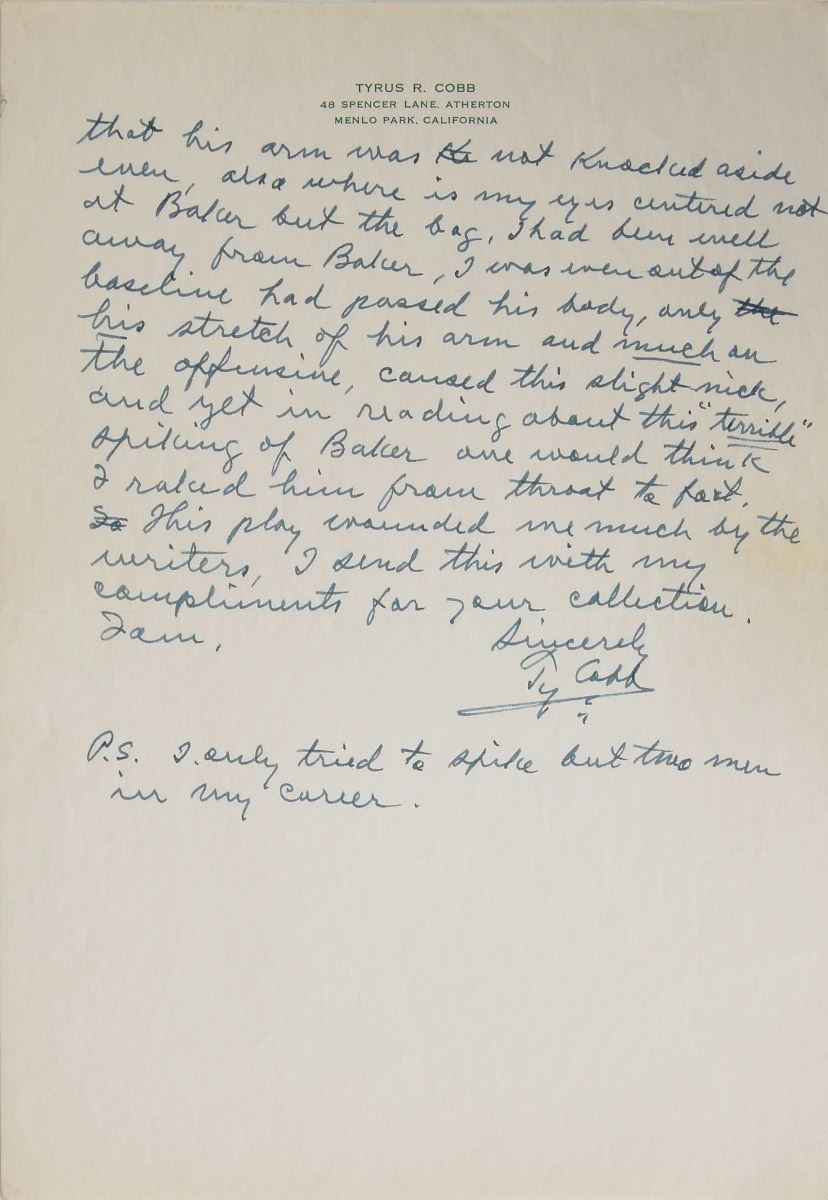 TYRUS R. COBB
48 SPENCER LANE, ATHERTON
MENLO PARK, CALIFORNIA
that his arm was Kn not Knocked aside
even, also where is my eyes centered not
at Baker but the bag, I had been well
away from Baker, I was even out of the
baseline had passed his body, only the
his stretch of his arm and much on
the offensive, caused this slight nick,
and yet in reading about this "terrible"
spiking of Baker one would think
I raked him from throat to foot.
So This play wounded me much by the
writers, I send this with my
compliments for your collection.
I am,
Sincerely
Ty Cobb
P.S. I only tried to spike but two men
in my career.